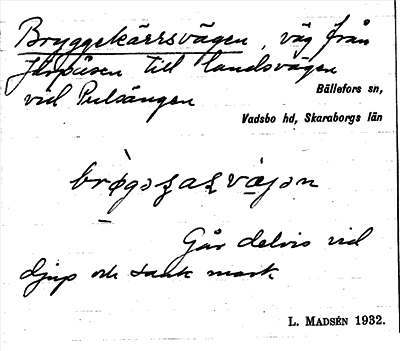 Bryggekärrsvägen, väg från
Jäspåsen till landsvägen
vid Pulsängen
Bällefors sn,
Vadsbo hd, Skaraborgs län
Går delvis vid
djup och sank mark
L. MADSÉN 1932.